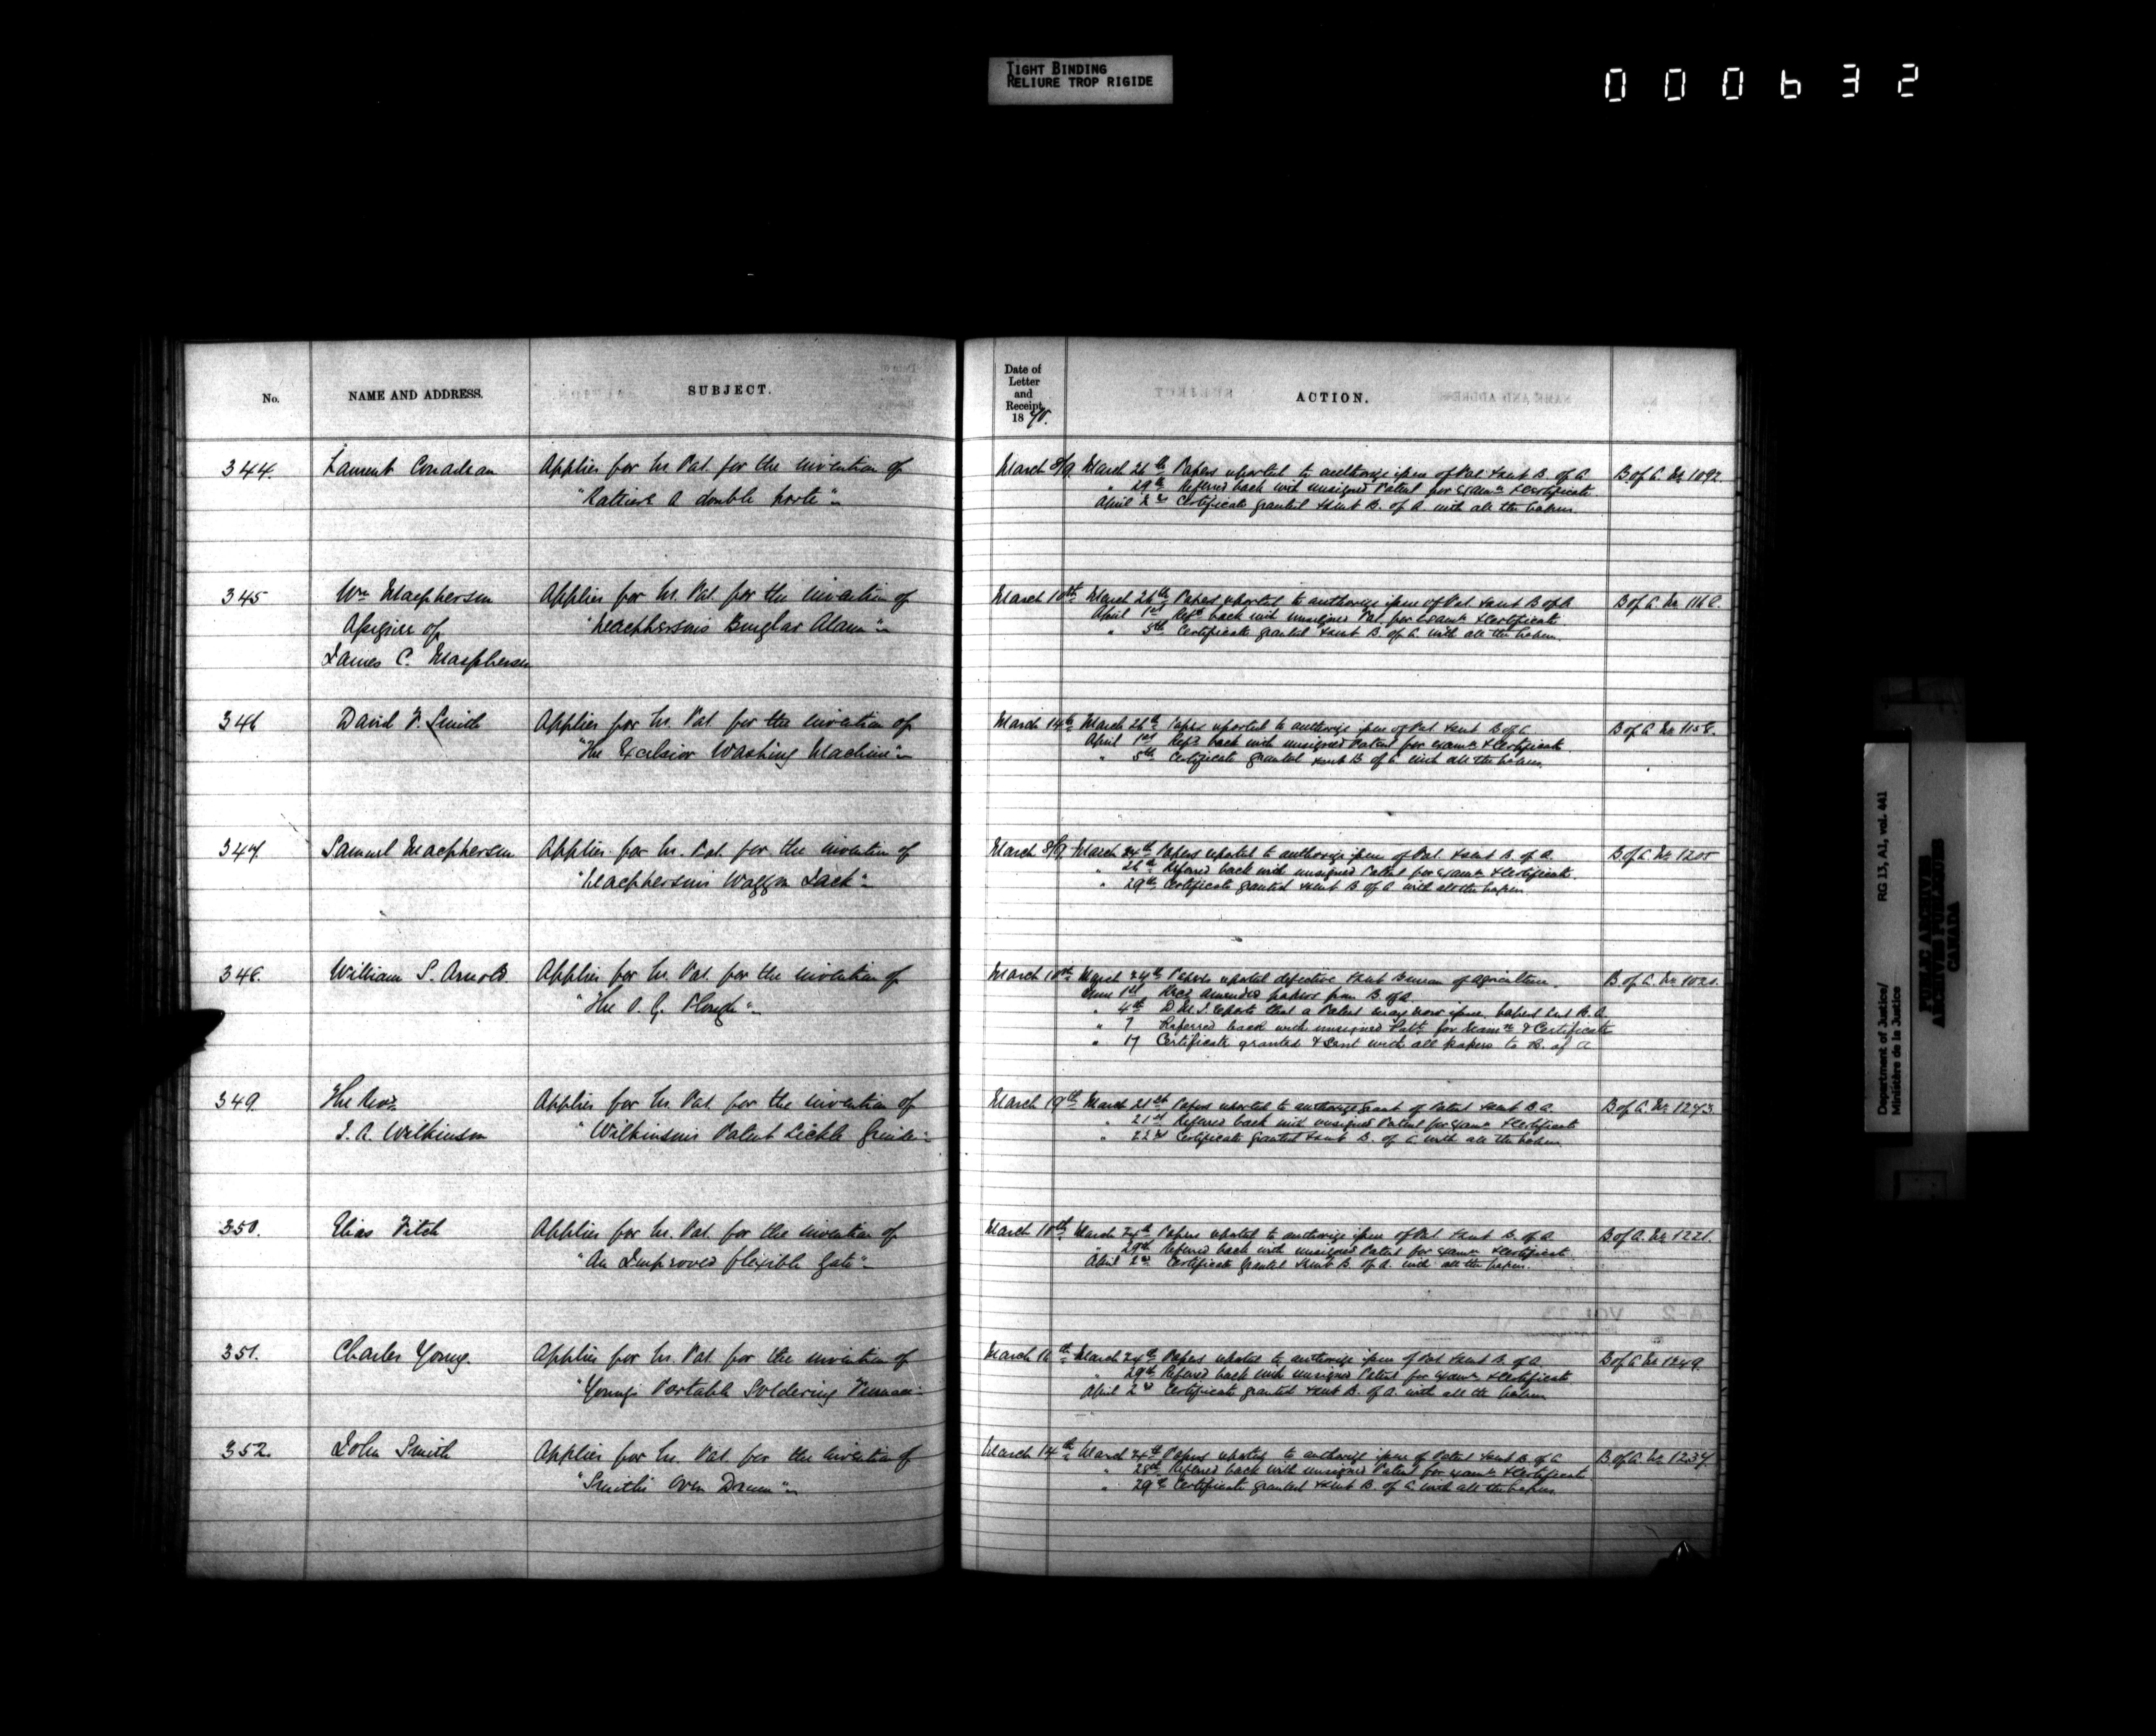 TIGHT BINDING
RELIURE TROP RIGIDE
000632
No.
NAME AND ADDRESS.
SUBJECT.
Date of
Letter
and
Receipt,
1870.
ACTION.
344. Laurent Applies for Lrs. Pat. for the invention of
" a double porte"
March 8/9 March 26th Papers reported to authorize issue of Pat. & sent B. of A. B of A. No 1092.
" 29th Referred back with unsigned Patent for Examn & Certificate
April 2nd Certificate granted & sent B. of A. with all the papers.
345 Wm Macpherson Applies for Lrs. Pat. for the invention of
Assignee of "Macpherson's Burglar Alarm"
James C. Macpherson
March 10th March 26th Papers reported to authorize issue of Pat. & sent B of A B of A. No 1168.
April 1st Refd back with unsigned Pat. for Examn & Certificate
" 5th Certificate granted & sent B. of A. with all the papers.
346 David F. Smith Applies for Lrs. Pat. for the invention of
"The Excelsior Washing Machine"
March 14th March 26th Papers reported to authorize issue of Pat. & sent B of A. B of A. No 1158.
April 1st Refd back with unsigned Patent for Examn & Certificate
" 5th Certificate granted & sent B. of A. with all the papers.
347. Samuel Macpherson Applies for Lrs. Pat. for the invention of
"Macpherson's Waggon Jack"
March 8/9 March 24th Papers reported to authorize issue of Pat. & sent B. of A. B of A. No 1205
" 26th Referred back with unsigned Patent for Examn & Certificate.
" 29th Certificate granted & sent B. of A. with all the papers.
348. William S. Arnold Applies for Lrs. Pat. for the invention of
"The O. G. Plough"
March 10th March 24th Papers reported defective & sent Bureau of Agriculture. B. of A. No 1021.
June 1st Recd amended papers from B. of A.
" 4th D.M.J. reports that a Patent may now issue, papers sent B. A.
" 7 Referred back with unsigned Patt. for Examn & Certificate
" 17 Certificate granted & sent with all papers to B. of A
349. The Revd Applies for Lrs. Pat. for the invention of
J. A. Wilkinson "Wilkinson's Patent Sickle Grinder"
March 19th March 21st Papers reported to authorize grant of Patent & sent B. A. B of A. No 1243.
" 21st Referred back with unsigned Patent for Examn & Certificate
" 22nd Certificate granted & sent B. of A. with all the papers.
350. Elias Fitch Applies for Lrs. Pat. for the invention of
"An Improved flexible Gate"
March 10th March 24th Papers reported to authorize issue of Pat. & sent B. of A. B of A. No 1221.
" 29th Referred back with unsigned Patent for Examn & Certificate
April 2nd Certificate granted & sent B. of A. with all the papers.
351. Charles Young. Applies for Lrs. Pat. for the invention of
"Young's Portable Soldering Furnace"
March 16th March 24th Papers reported to authorize issue of Pat. & sent B. of A. B of A No 1249.
" 29th Referred back with unsigned Patent for Examn & Certificate
April 2nd Certificate granted & sent B. of A. with all the papers
352. John Smith Applies for Lrs. Pat. for the invention of
"Smith's Oven Drum"
March 14th March 24th Papers reported to authorize issue of Patent & sent B. of A B of A. No 1237.
" 28th Referred back with unsigned Patent for Examn & Certificate
" 29th Certificate granted & sent B. of A. with all the papers
Department of Justice/ RG 13, A1, vol. 441
Ministère de la Justice
PUBLIC ARCHIVES
ARCHIVES PUBLIQUES
CANADA